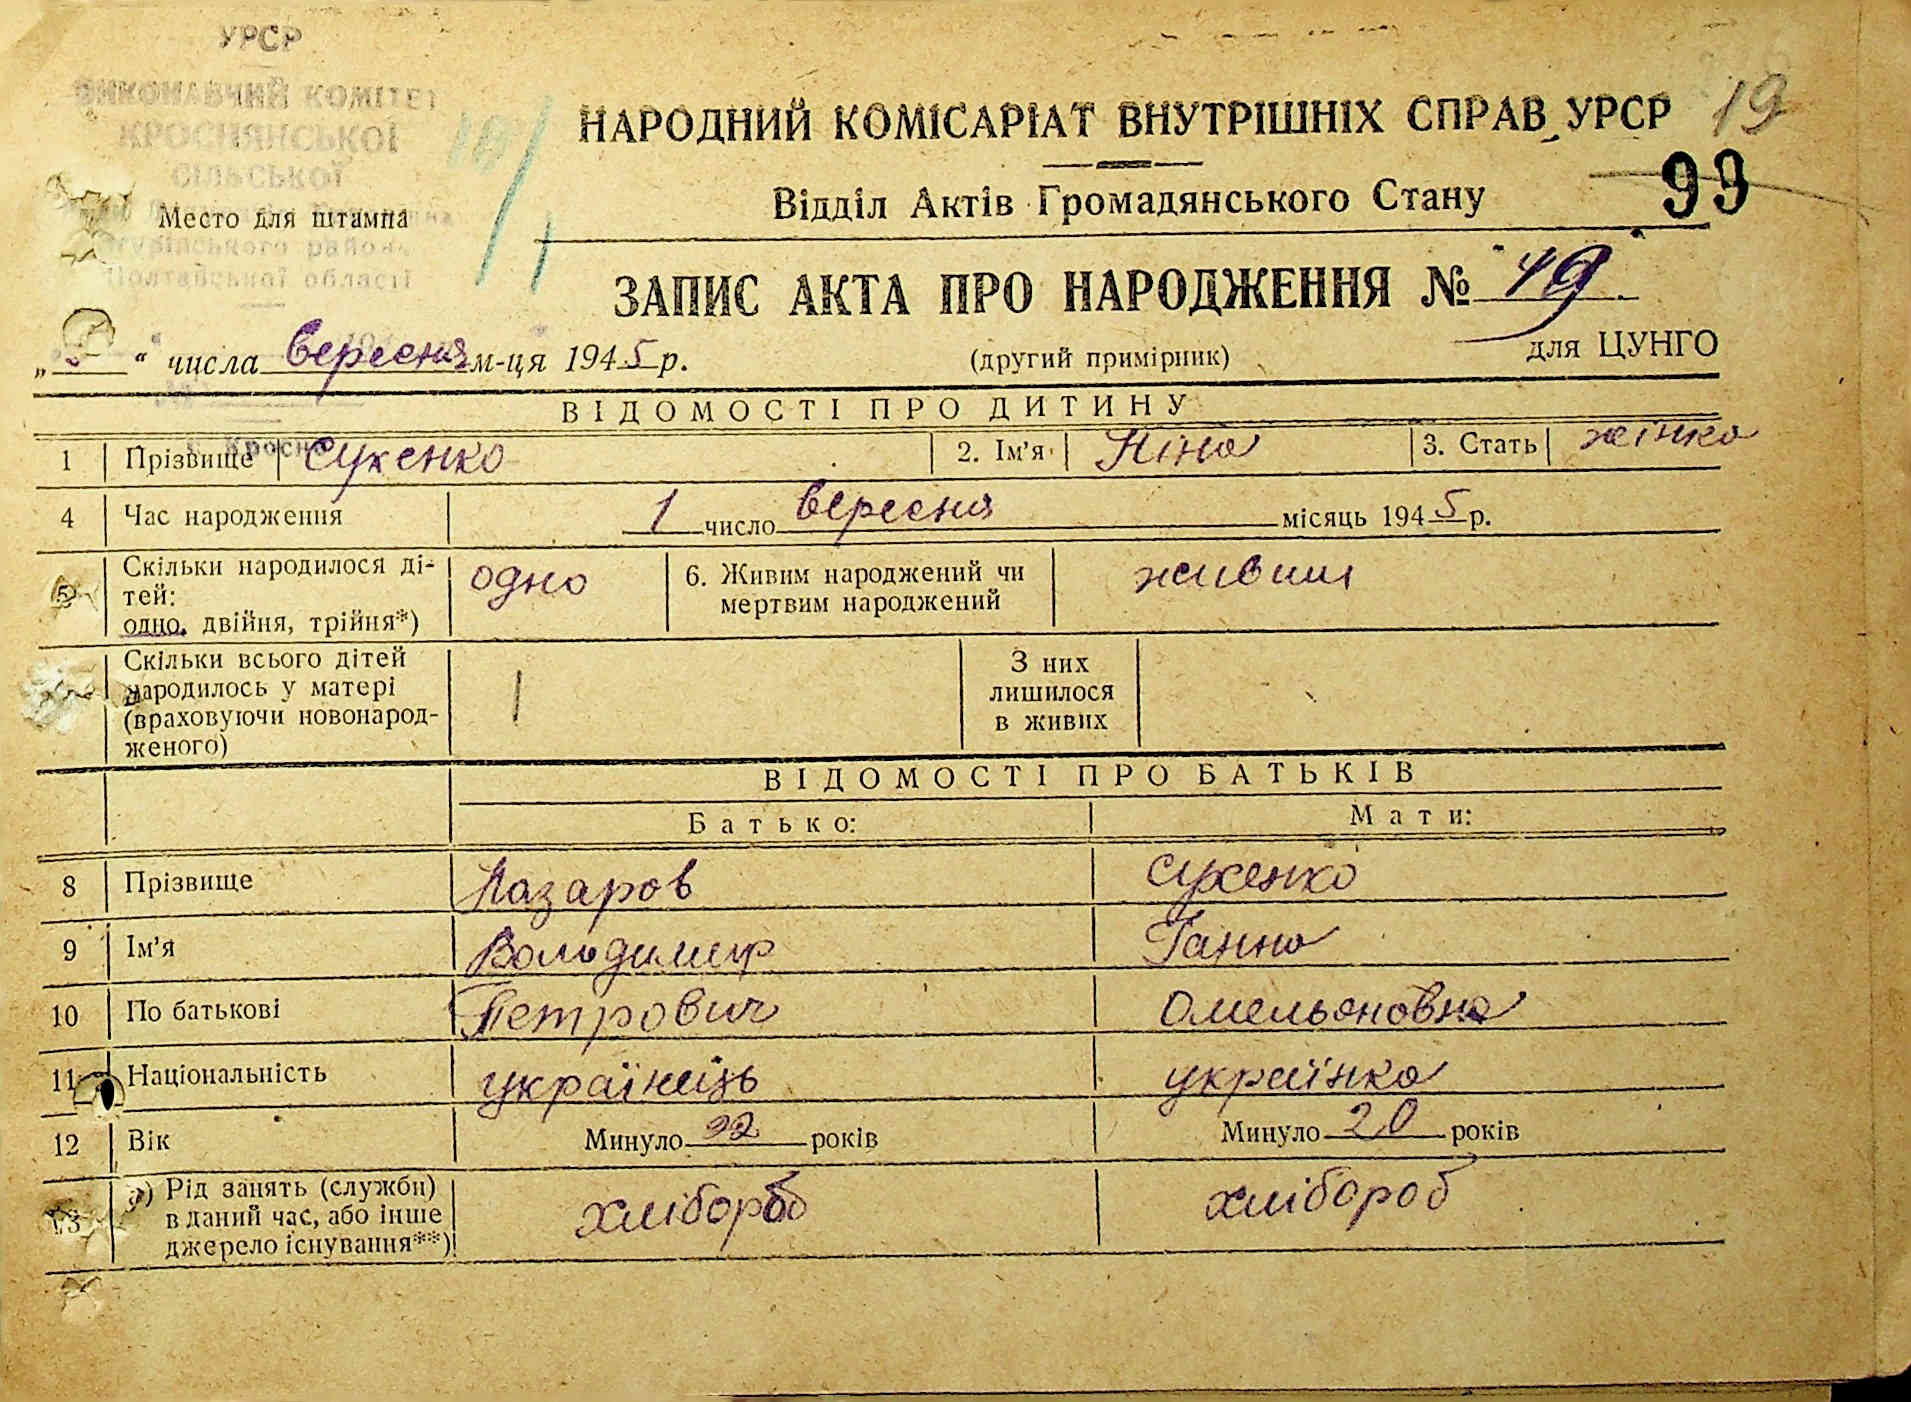 УРСР
ВИКОНАВЧИЙ КОМІТЕТ
КРОСНЯНСЬКОЇ
СІЛЬСЬКОЇ
Место для штампа
району
Полтавської області
19
НАРОДНИЙ КОМІСАРІАТ ВНУТРІШНІХ СПРАВ УРСР
99
Відділ Актів Громадянського Стану
ЗАПИС АКТА ПРО НАРОДЖЕННЯ № 19
„ “ числа вересня м-ця 1945 р. (другий примірник) для ЦУНГО
ВІДОМОСТІ ПРО ДИТИНУ
1 Прізвище Сукенко 2. Ім’я Ніна 3. Стать жінка
4 Час народження 1 число вересня місяць 1945 р.
5 Скільки народилося ді-
тей:
одно, двійня, трійня*) одно 6. Живим народжений чи
мертвим народжений живим
Скільки всього дітей
народилось у матері
(враховуючи новонарод-
женого) 1 З них
лишилося
в живих
ВІДОМОСТІ ПРО БАТЬКІВ
Батько: Мати:
8 Прізвище Лазаров Сукенко
9 Ім’я Володимир Ганна
10 По батькові Петрович Омеляновна
11 Національність українець українка
12 Вік Минуло 22 років Минуло 20 років
13 а) Рід занять (служби)
в даний час, або інше
джерело існування**) хлібороб хлібороб